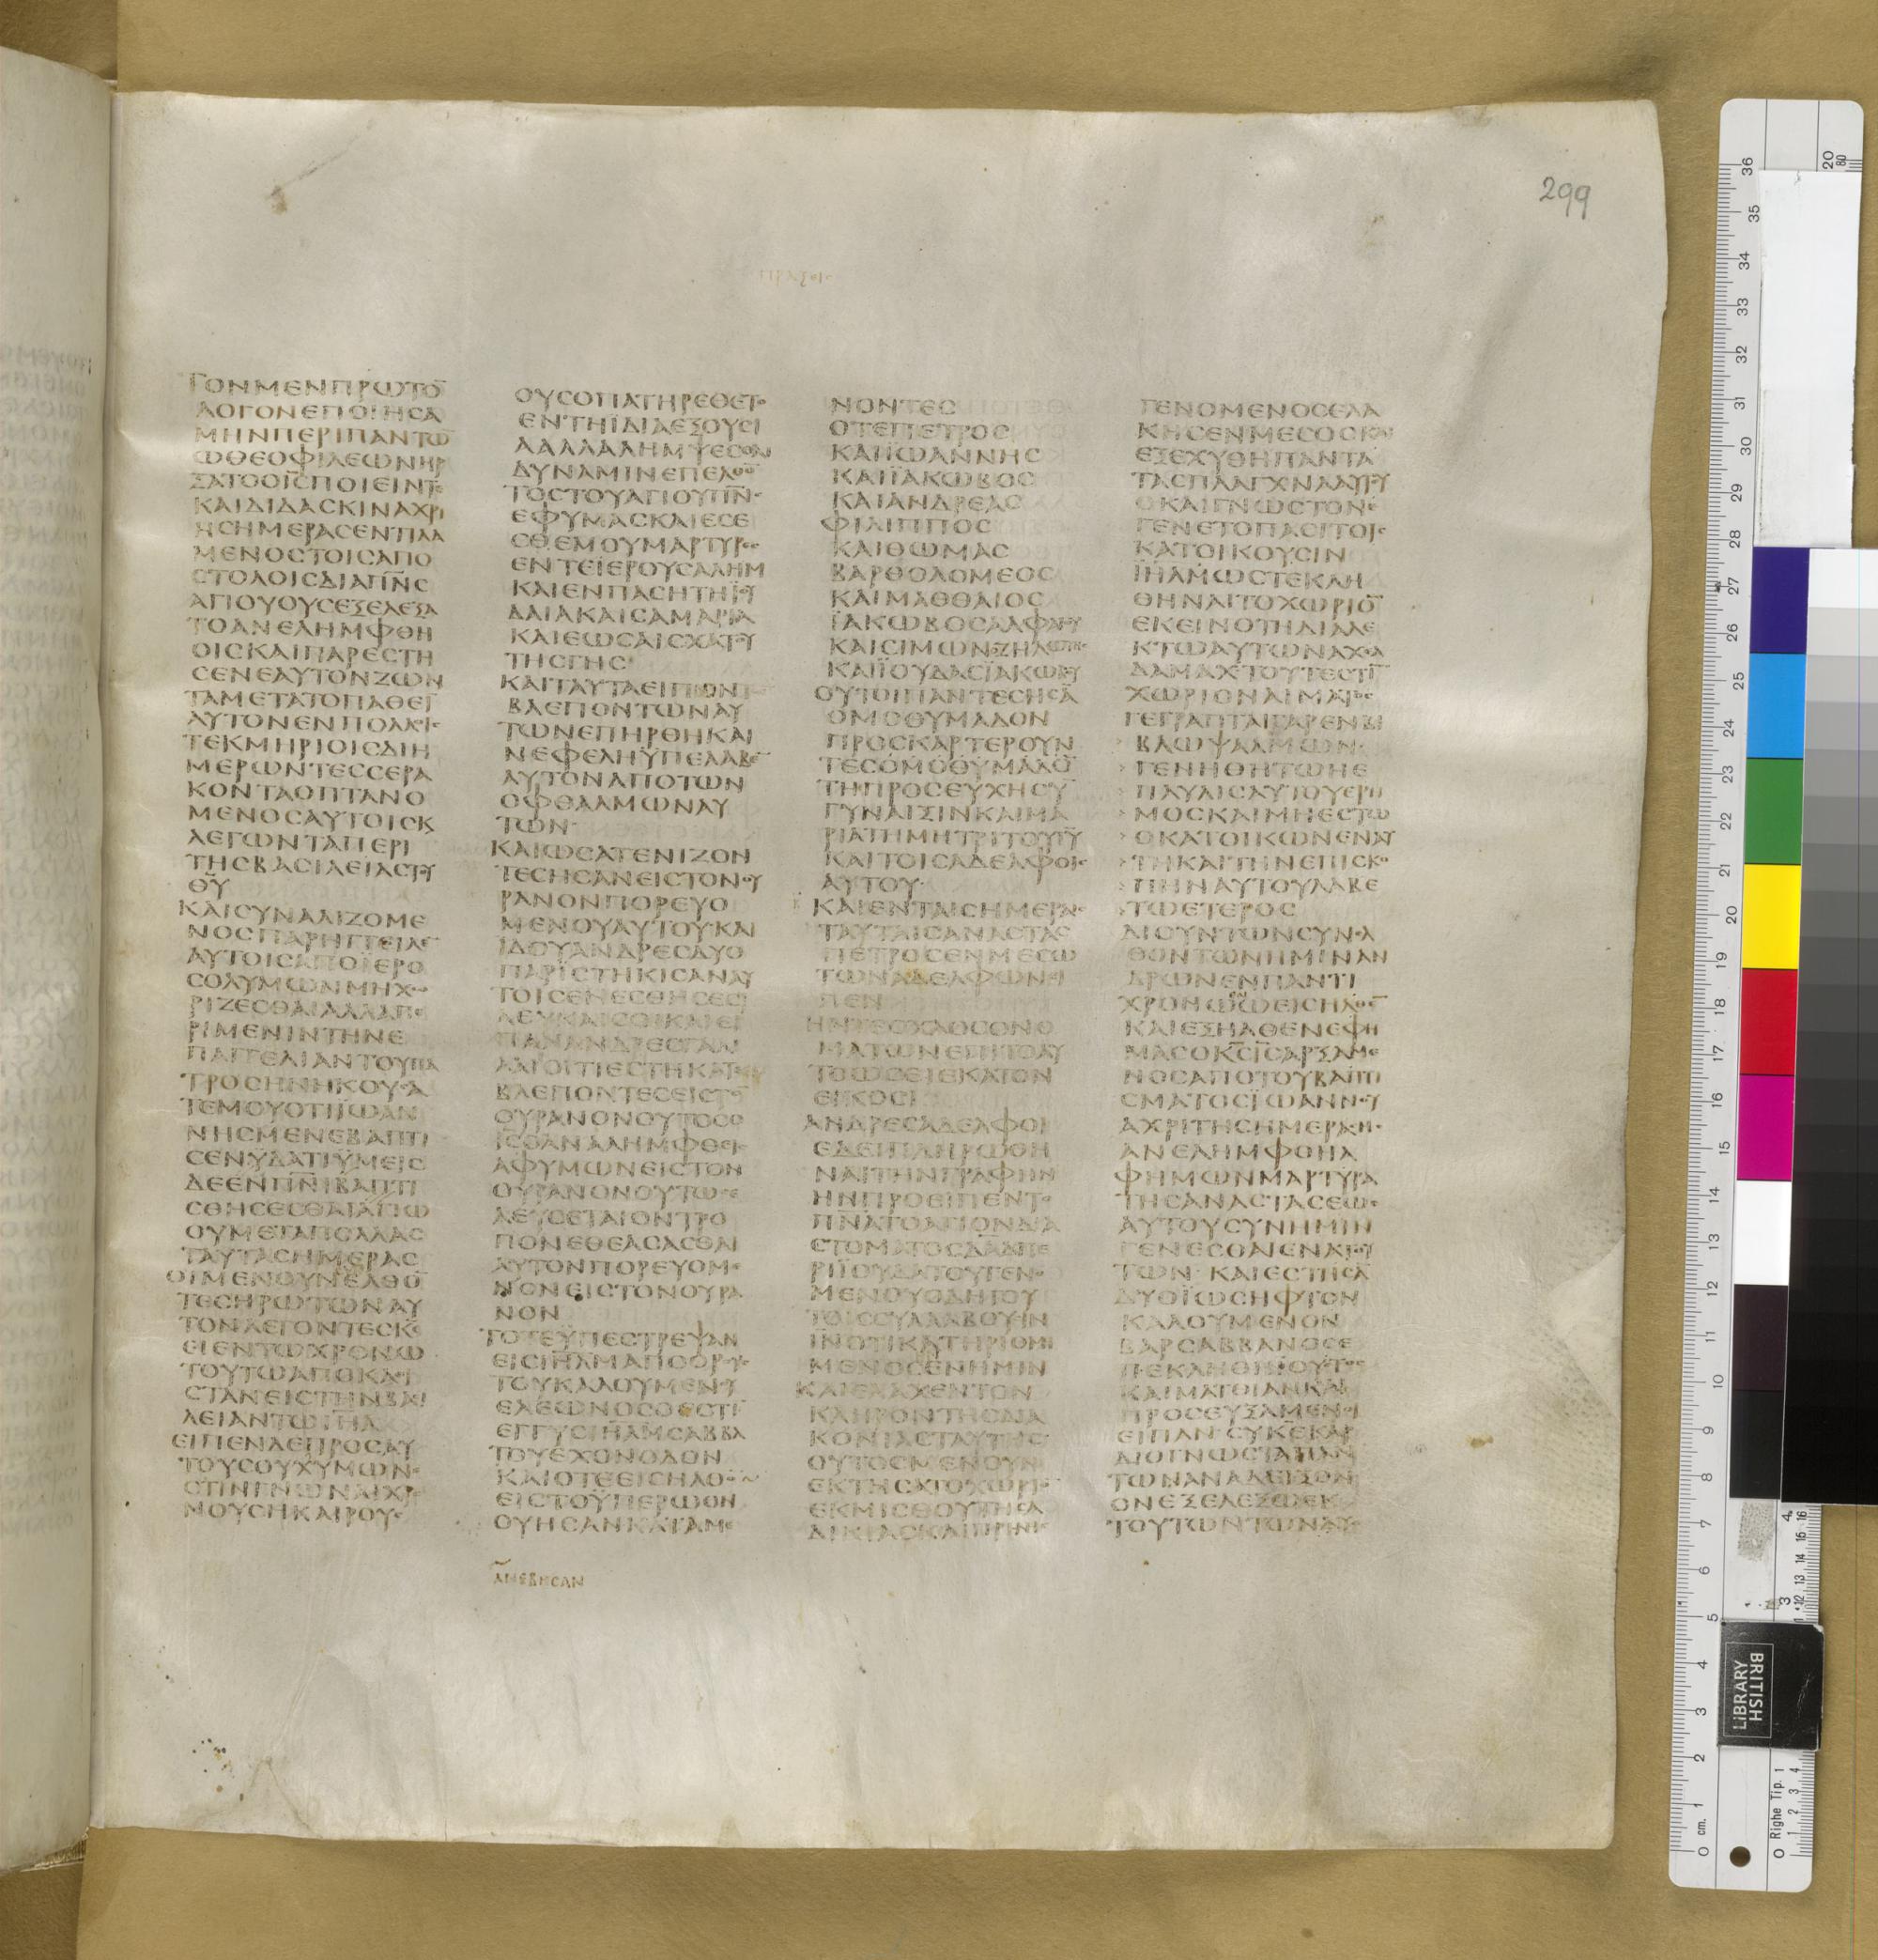 299
ΠΡΑΞΟΙ
ΤΟΝΜΕΝΠΡΩΤΟ̅
ΛΟΓΟΝΕΠΟΙΗϹΑ
ΜΗΝΠΕΡΙΠΑΝΤΩ̅
ΩΘΕΟΦΙΛΕΩΝΗΡ
ΞΑΤΟΟΙ̅Ϲ̅ΠΟΙΕΙΝΤΕ
ΚΑΙΔΙΔΑϹΚΙΝΑΧΡΙ
ΗϹΗΜΕΡΑϹΕΝΤΙΛΑ
ΜΕΝΟϹΤΟΙϹΑΠΟ
ϹΤΟΛΟΙϹΔΙΑΠ̅Ν̅Ϲ̅
ΑΓΙΟΥΟΥϹΕΞΕΛΕΞΑ
ΤΟΑΝΕΛΗΜΦΘΗ
ΟΙϹΚΑΙΠΑΡΕϹΤΗ
ϹΕΝΕΑΥΤΟΝΖΩΝ
ΤΑΜΕΤΑΤΟΠΑΘΕΙ̅
ΑΥΤΟΝΕΝΠΟΛΛΟΙϹ
ΤΕΚΜΗΡΙΟΙϹΔΙΗ
ΜΕΡΩΝΤΕϹϹΕΡΑ
ΚΟΝΤΑΟΠΤΑΝΟ
ΜΕΝΟϹΑΥΤΟΙϹΚ
ΛΕΓΩΝΤΑΠΕΡΙ
ΤΗϹΒΑϹΙΛΕΙΑϹΤΟΥ
Θ̅Υ̅
ΚΑΙϹΥΝΑΛΙΖΟΜΕ
ΝΟϹΠΑΡΗΓΓΕΙΛΕ̅
ΑΥΤΟΙϹΑΠΟΪΕΡΟ
ϹΟΛΥΜΩΝΜΗΧΩ
ΡΙΖΕϹΘΑΙΑΛΛΑΠΕ
ΡΙΜΕΝΙΝΤΗΝΕ
ΠΑΓΓΕΛΙΑΝΤΟΥΠΑ
ΤΡΟϹΗΝΗΚΟΥϹΑ
ΤΕΜΟΥΟΤΙΪΩΑΝ
ΝΗϹΜΕΝΕΒΑΠΤΙ
ϹΕΝΥΔΑΤΙΫΜΕΙϹ
ΔΕΕΝΠ̅Ν̅Ι̅ΒΑΠΤΙ
ϹΘΗϹΕϹΘΑΙΑΓΙΩ
ΟΥΜΕΤΑΠΟΛΛΑϹ
ΤΑΥΤΑϹΗΜΕΡΑϹ
ΟΙΜΕΝΟΥΝΕΛΘΟ̅
ΤΕϹΗΡΩΤΩΝΑΥ
ΤΟΝΛΕΓΟΝΤΕϹΚ̅Ε̅
ΕΙΕΝΤΩΧΡΟΝΩ
ΤΟΥΤΩΑΠΟΚΑΤΙ
ϹΤΑΝΕΙϹΤΗΝΒΑϹΙ
ΛΕΙΑΝΤΩΙ̅Η̅Λ̅
ΕΙΠΕΝΔΕΠΡΟϹΑΥ
ΤΟΥϹΟΥΧΥΜΩΝΕ
ϹΤΙΝΓΝΩΝΑΙΧΡΟ
ΝΟΥϹΗΚΑΙΡΟΥϹ
ΟΥϹΟΠΑΤΗΡΕΘΕΤΟ
ΕΝΤΗΪΔΙΑΕΞΟΥϹΙ
ΑΑΛΛΑΛΗΜΨΕϹΘΑΙ
ΔΥΝΑΜΙΝΕΠΕΛΘΟ̅
ΤΟϹΤΟΥΑΓΙΟΥΠ̅Ν̅Ϲ̅
ΕΦΥΜΑϹΚΑΙΕϹΕ
ϹΘΕΜΟΥΜΑΡΤΥΡΕϹ
ΕΝΤΕΪΕΡΟΥϹΑΛΗΜ
ΚΑΙΕΝΠΑϹΗΤΗΪΟΥ
ΔΑΙΑΚΑΙϹΑΜΑΡΙΑ
ΚΑΙΕΩϹΑΙϹΧΑΤΟΥ
ΤΗϹΓΗϹ
ΚΑΙΤΑΥΤΑΕΙΠΟΝΤΩ̅
ΒΛΕΠΟΝΤΩΝΑΥ
ΤΩΝΕΠΗΡΘΗΚΑΙ
ΝΕΦΕΛΗΫΠΕΛΑΒΕ̅
ΑΥΤΟΝΑΠΟΤΩΝ
ΟΦΘΑΛΜΩΝΑΥ
ΤΩΝ
ΚΑΙΩϹΑΤΕΝΙΖΟΝ
ΤΕϹΗϹΑΝΕΙϹΤΟΝΟΥ
ΡΑΝΟΝΠΟΡΕΥΟ
ΜΕΝΟΥΑΥΤΟΥΚΑΙ
ΪΔΟΥΑΝΔΡΕϹΔΥΟ
ΠΑΡΙϹΤΗΚΙϹΑΝΑΥ
ΤΟΙϹΕΝΕϹΘΗϹΕϹΙ
ΛΕΥΚΑΙϹΟΙΚΑΙΕΙ
ΠΑΝΑΝΔΡΕϹΓΑΛΙ
ΛΑΙΟΙΤΙΕϹΤΗΚΑΤΕ
ΒΛΕΠΟΝΤΕϹΕΙϹΤΟ̅
ΟΥΡΑΝΟΝΟΥΤΟϹΟ
Ι̅Ϲ̅ΟΑΝΑΛΗΜΦΘΕΙϹ
ΑΦΥΜΩΝΕΙϹΤΟΝ
ΟΥΡΑΝΟΝΟΥΤΩϹΕ
ΛΕΥϹΕΤΑΙΟΝΤΡΟ
ΠΟΝΕΘΕΑϹΑϹΘΑΙ
ΑΥΤΟΝΠΟΡΕΥΟΜΕ
ΝΟΝΕΙϹΤΟΝΟΥΡΑ
ΝΟΝ
ΤΟΤΕΫΠΕϹΤΡΕΨΑΝ
ΕΙϹΙ̅Η̅Λ̅Μ̅ΑΠΟΟΡΟΥϹ
ΤΟΥΚΑΛΟΥΜΕΝΟΥ
ΕΛΕΩΝΟϹΟΕϹΤΙ̅
ΕΓΓΥϹΙ̅Η̅Λ̅Μ̅ϹΑΒΒΑ
ΤΟΥΕΧΟΝΟΔΟΝ
ΚΑΙΟΤΕΕΙϹΗΛΘΟ̅
ΕΙϹΤΟΫΠΕΡΩΟΝ
ΟΥΗϹΑΝΚΑΤΑΜΕ
ΑΝΕΒΗϹΑΝ
ΝΟΝΤΕϹ
ΟΤΕΠΕΤΡΟϹ
ΚΑΙΪΩΑΝΝΗϹ
ΚΑΙΪΑΚΩΒΟϹ
ΚΑΙΑΝΔΡΕΑϹ
ΦΙΛΙΠΠΟϹ
ΚΑΙΘΩΜΑϹ
ΒΑΡΘΟΛΟΜΕΟϹ
ΚΑΙΜΑΘΘΑΙΟϹ
ΪΑΚΩΒΟϹΑΛΦΑΙΟΥ
ΚΑΙϹΙΜΩΝΖΗΛΩΤΗϹ
ΚΑΙΪΟΥΔΑϹΪΑΚΩΒΟΥ
ΟΥΤΟΙΠΑΝΤΕϹΗϹΑ̅
ΟΜΟΘΥΜΑΔΟΝ
ΠΡΟϹΚΑΡΤΕΡΟΥΝ
ΤΕϹΟΜΟΘΥΜΑΔΟ̅
ΤΗΠΡΟϹΕΥΧΗϹΥ̅
ΓΥΝΑΙΞΙΝΚΑΙΜΑ
ΡΙΑΤΗΜΗΤΡΙΤΟΥΙ̅Υ̅
ΚΑΙΤΟΙϹΑΔΕΛΦΟΙϹ
ΑΥΤΟΥ
ΚΑΙΕΝΤΑΙϹΗΜΕΡΑΙϹ
ΤΑΥΤΑΙϹΑΝΑϹΤΑϹ
ΠΕΤΡΟϹΕΝΜΕϹΩ
ΤΩΝΑΔΕΛΦΩΝΕΙ
ΠΕΝ
ΗΝΤΕΟΧΛΟϹΟΝΟ
ΜΑΤΩΝΕΠΙΤΟΑΥ
ΤΟΩϹΕΙΕΚΑΤΟΝ
ΕΙΚΟϹΙ
ΑΝΔΡΕϹΑΔΕΛΦΟΙ
ΕΔΕΙΠΛΗΡΩΘΗ
ΝΑΙΤΗΝΓΡΑΦΗΝ
ΗΝΠΡΟΕΙΠΕΝΤΟ
ΠΝΑΤΟΑΓΙΟΝΔΙΑ
ϹΤΟΜΑΤΟϹΔΑΔΠΕ
ΡΙΪΟΥΔΑΤΟΥΓΕΝΟ
ΜΕΝΟΥΟΔΗΓΟΥ
ΤΟΙϹϹΥΛΛΑΒΟΥϹΙΝ
Ι̅Ν̅ΟΤΙΚΑΤΗΡΙΘΜΗ
ΜΕΝΟϹΕΝΗΜΙΝ
ΚΑΙΕΛΑΧΕΝΤΟΝ
ΚΛΗΡΟΝΤΗϹΔΙΑ
ΚΟΝΙΑϹΤΑΥΤΗϹ
ΟΥΤΟϹΜΕΝΟΥΝ
ΕΚΤΗϹΑΤΟΧΩΡΙΟ̅
ΕΚΜΙϹΘΟΥΤΗϹΑ
ΔΙΚΙΑϹΚΑΙΠΡΗΝΗϹ
ΓΕΝΟΜΕΝΟϹΕΛΑ
ΚΗϹΕΝΜΕϹΟϹΚΑΙ
ΕΞΕΧΥΘΗΠΑΝΤΑ
ΤΑϹΠΛΑΓΧΝΑΑΥΤΟΥ
ΟΚΑΙΓΝΩϹΤΟΝΕ
ΓΕΝΕΤΟΠΑϹΙΤΟΙϹ
ΚΑΤΟΙΚΟΥϹΙΝ
Ι̅Η̅Λ̅Μ̅ΩϹΤΕΚΛΗ
ΘΗΝΑΙΤΟΧΩΡΙΟ̅
ΕΚΕΙΝΟΤΗΔΙΑΛΕ
ΚΤΩΑΥΤΩΝΑΧΕΛ
ΔΑΜΑΧΤΟΥΤΕϹΤΙ̅
ΧΩΡΙΟΝΑΙΜΑΤΟϹ
ΓΕΓΡΑΠΤΑΙΓΑΡΕΝΒΙ
ΒΛΩΨΑΛΜΩΝ
>ΓΕΝΗΘΗΤΩΗΕ
>ΠΑΥΛΙϹΑΥΤΟΥΕΡΗ
>ΜΟϹΚΑΙΜΗΕϹΤΩ
>ΟΚΑΤΟΙΚΩΝΕΝΑΥ
>ΤΗΚΑΙΤΗΝΕΠΙϹΚΟ
>ΠΗΝΑΥΤΟΥΛΑΒΕ
>ΤΩΕΤΕΡΟϹ
ΔΙΟΥΝΤΩΝϹΥΝΕΛ
ΘΟΝΤΩΝΗΜΙΝΑΝ
ΔΡΩΝΕΝΠΑΝΤΙ
ΧΡΟΝΩΩΕΙϹΗΛΘΕ̅
ΚΑΙΕΞΗΛΘΕΝΕΦΗ
ΜΑϹΟΚ̅Ϲ̅Ι̅Ϲ̅ΑΡΞΑΜΕ
ΝΟϹΑΠΟΤΟΥΒΑΠΤΙ
ϹΜΑΤΟϹΪΩΑΝΝΟΥ
ΑΧΡΙΤΗϹΗΜΕΡΑϹΗϹ
ΑΝΕΛΗΜΦΘΗΑ
ΦΗΜΩΝΜΑΡΤΥΡΑ
ΤΗϹΑΝΑϹΤΑϹΕΩϹ
ΑΥΤΟΥϹΥΝΗΜΙΝ
ΓΕΝΕϹΘΑΙΕΝΑΤΟΥ
ΤΩΝΚΑΙΕϹΤΗϹΑ̅
ΔΥΟΪΩϹΗΦΤΟΝ
ΚΑΛΟΥΜΕΝΟΝ
ΒΑΡϹΑΒΒΑΝΟϹΕ
ΠΕΚΛΗΘΗΪΟΥϹΤΟϹ
ΚΑΙΜΑΘΘΙΑΝΚΑΙ
ΠΡΟϹΕΥΞΑΜΕΝΟΙ
ΕΙΠΑΝϹΥΚ̅Ε̅ΚΑΡ
ΔΙΟΓΝΩϹΤΑΠΑΝ
ΤΩΝΑΝΑΔΕΙΞΟΝ
ΟΝΕΞΕΛΕΞΩΕΚ
ΤΟΥΤΩΝΤΩΝΔΥΟ
BRITISH
LIBRARY